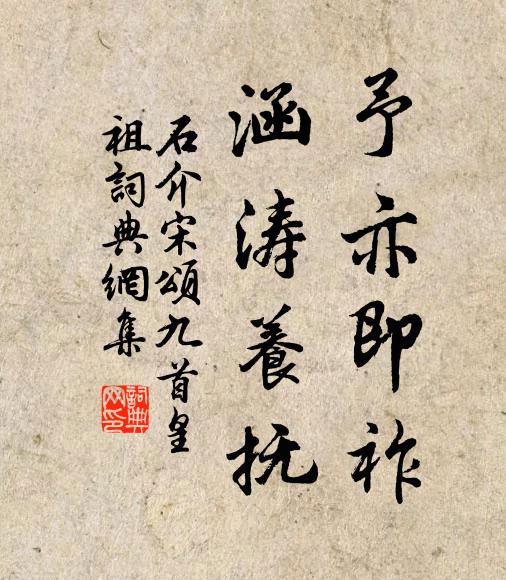 予亦即祚
涵涛養抚
石介宋頌九首皇
祖詞典網集
詞典
网印